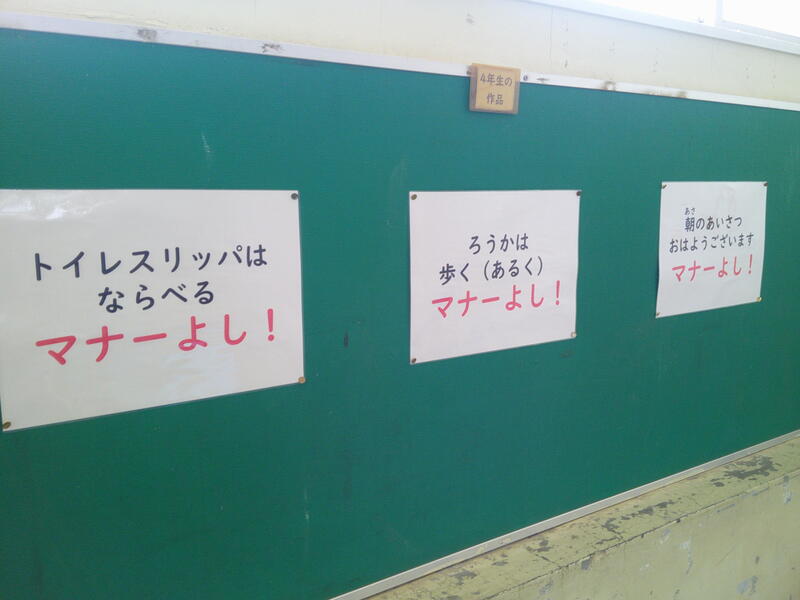 4年生の
作品
トイレスリッパは
ならべる
マナーよし！
ろうかは
歩く（あるく）
マナーよし！
あさ
朝のあいさつ
おはようございます
マナーよし！